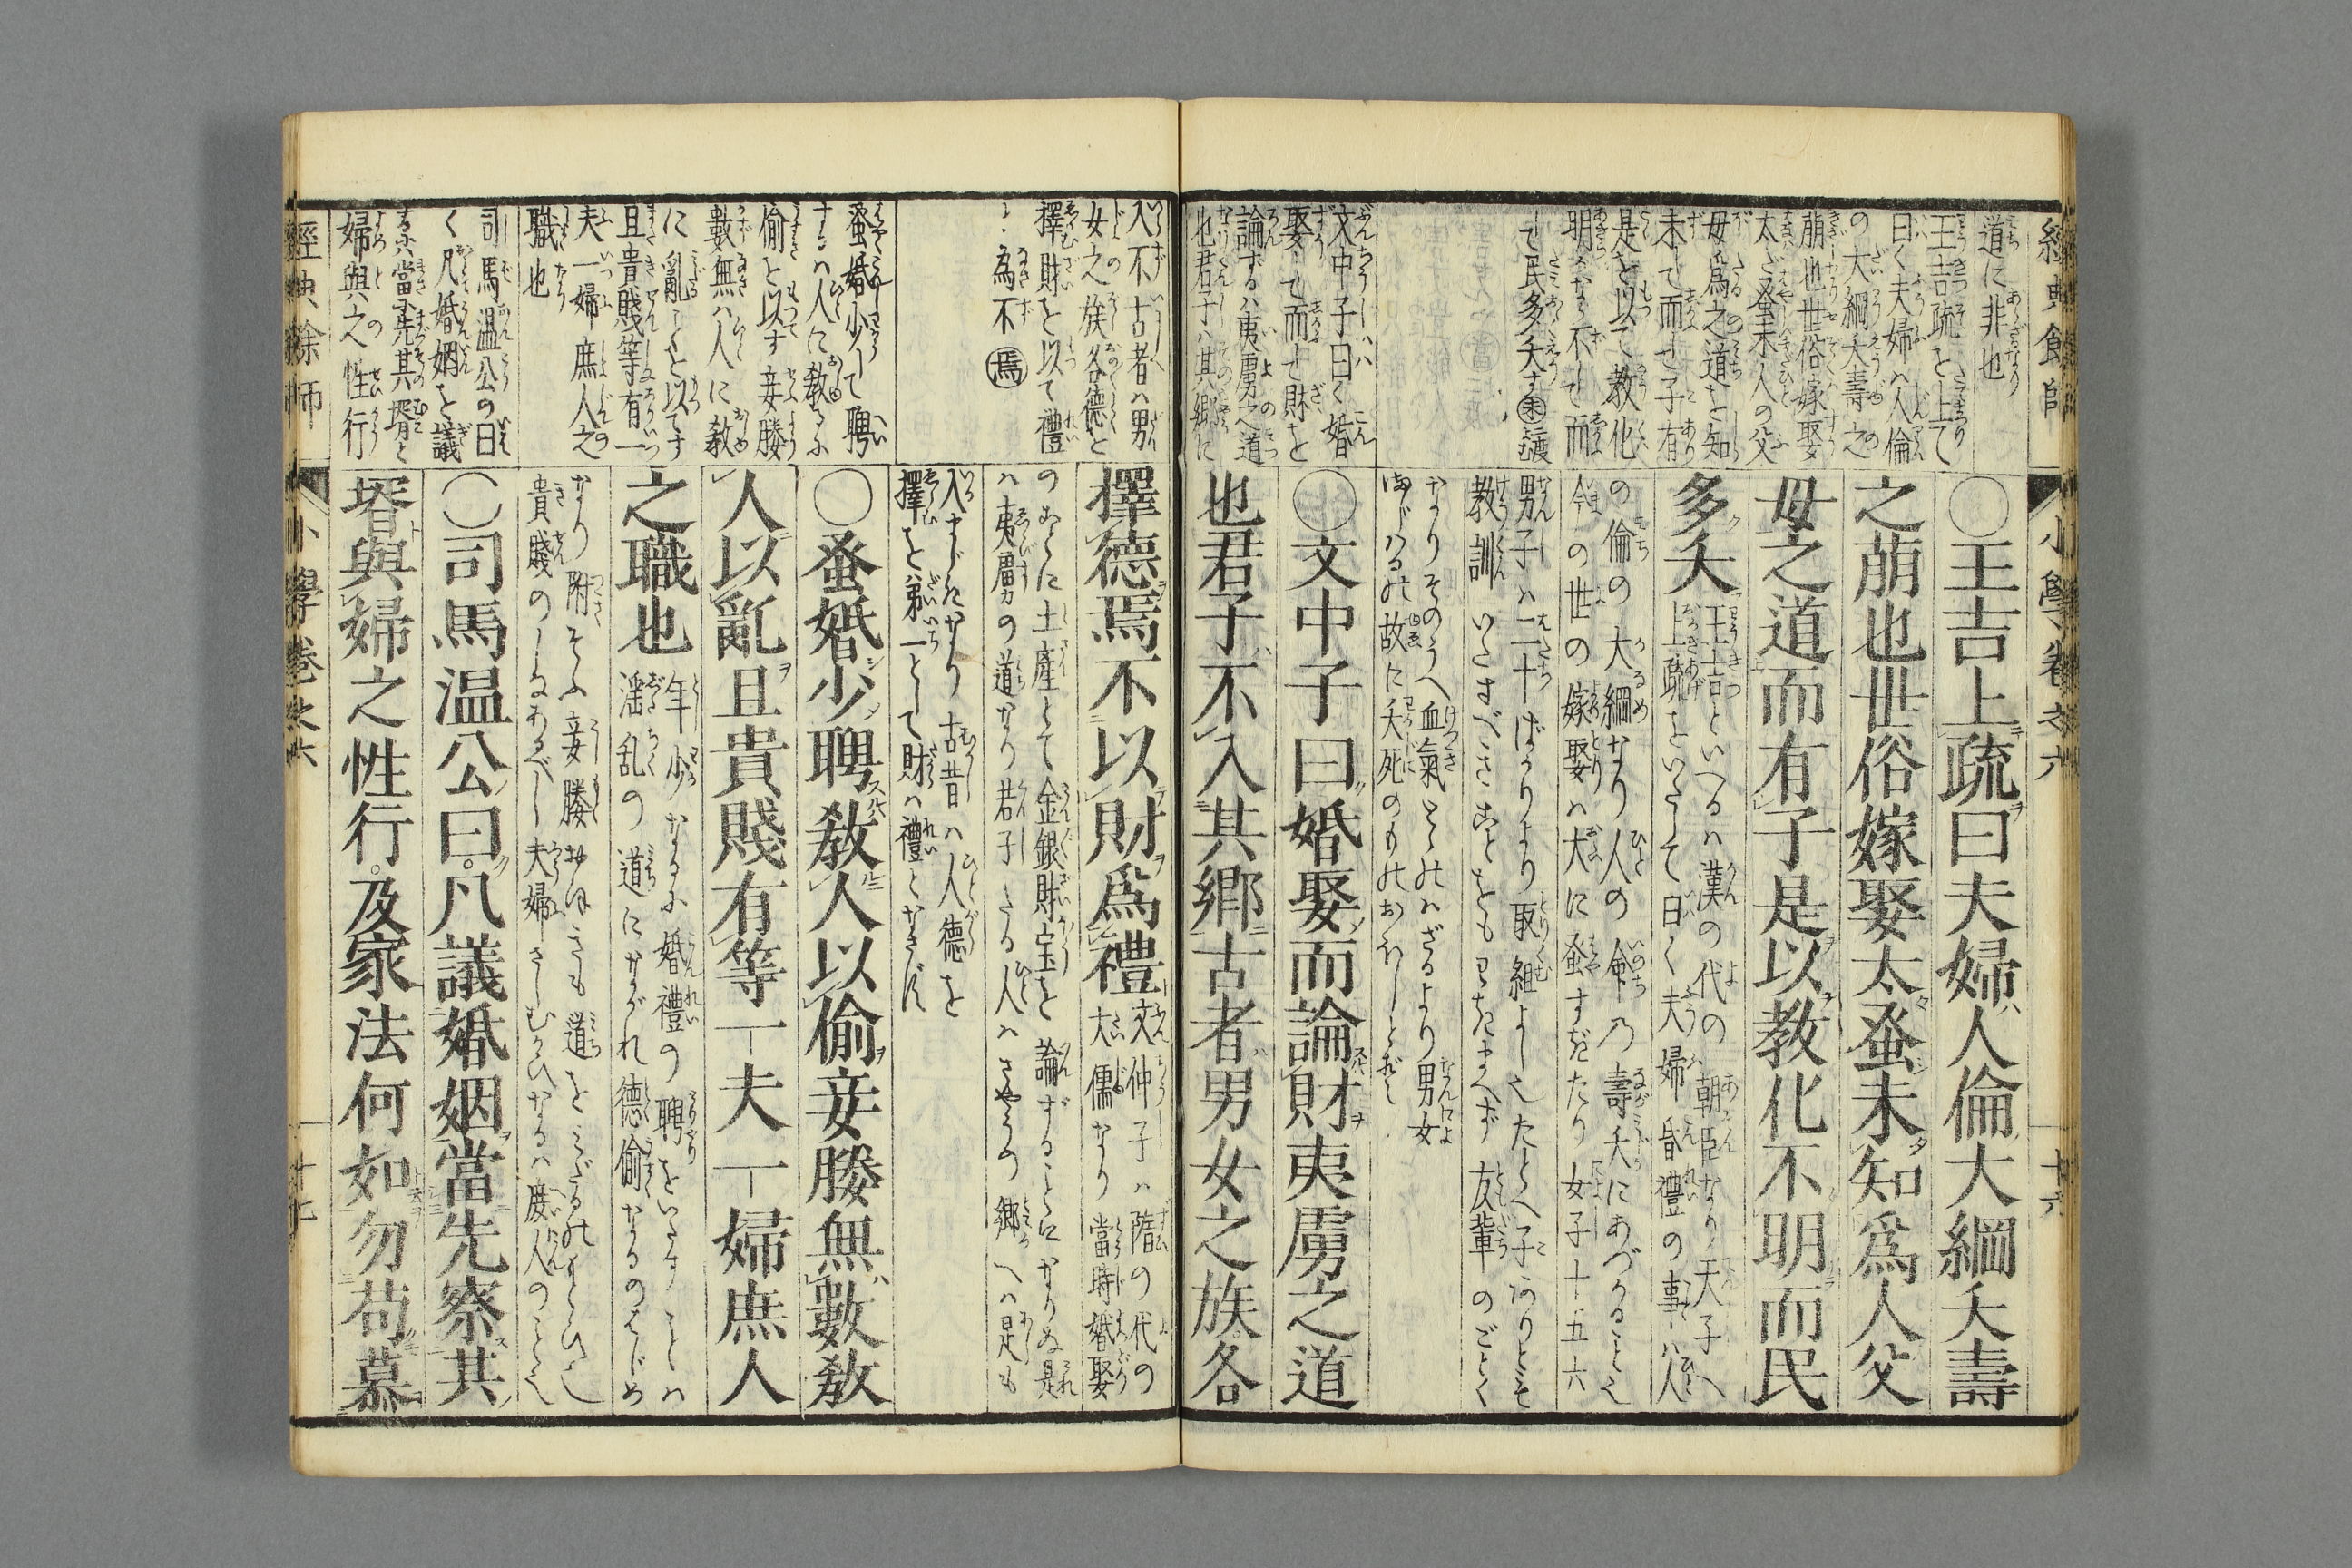 經典餘師
小學卷之六
十六
道に非也
王吉疏を上て
曰く夫婦ハ人倫
の大綱夭壽之
萌也世俗嫁娶
太ダ蚤未人の父
母爲之道を知
未して而せ子有
是を以て教化
明かなら不して而
て民多夭す
〇王吉上疏曰夫婦人倫大綱夭壽
之萌也世俗嫁娶太蚤未知爲人父
母之道而有子是以教化不明而民
多夭
王吉といへるハ漢の代の朝臣なり天子へ
上疏をいたして曰く夫婦昏禮の事ハ人
の倫の大綱なり人の命乃壽夭にあづかること也
今の世の嫁娶ハ大に蚤すぎたり女子十五六
男子ハ二十ばかりより取組よし
教訓いたすべきことをもわきまへず友輩のごとく
なりそのうへ血氣とゝのハざるより男女
故に夭死のもの
文中子曰く婚
娶して而して財を
論ずるハ夷虜之道
也君子ハ其郷に
〇文中子曰婚娶而論財夷虜之道
也君子不入其郷古者男女之族各
入不古者ハ男
女之族各德を
擇財を以て禮
と爲不 焉
擇德焉不以財爲禮
文仲子ハ隋の代の
大儒なり當時婚娶
のことに土産とて金銀財宝を論ずることになりぬ是
ハ夷虜の道なり君子たる人ハさやうの郷へハ是も
入まじきなり古昔ハ人德を
擇を第一として財ハ禮となさず
蚤婚少して聘
するハ人に教るに
偷を以す妾媵
數無ハ人に教
に亂を以てす
且貴賤等有一
夫一婦庶人之
職也
〇蚤婚少聘教人以偷妾媵無數教
人以亂且貴賤有等一夫一婦庶人
之職也
年少なるに婚禮の聘をいたすことハ
淫乱の道にながれ德偷なるのはじめ
なり附そふ妾媵おほきも道をみだるの
貴賤のしなあるべし夫婦さしむかひなるハ庶人のこと也
司馬温公の曰
く凡婚姻を議
するハ當に先其壻と
婦與之性行
〇司馬温公曰凡議婚姻當先察其
壻與婦之性行及家法何如勿苟慕
經典餘師
小學卷之六
十七